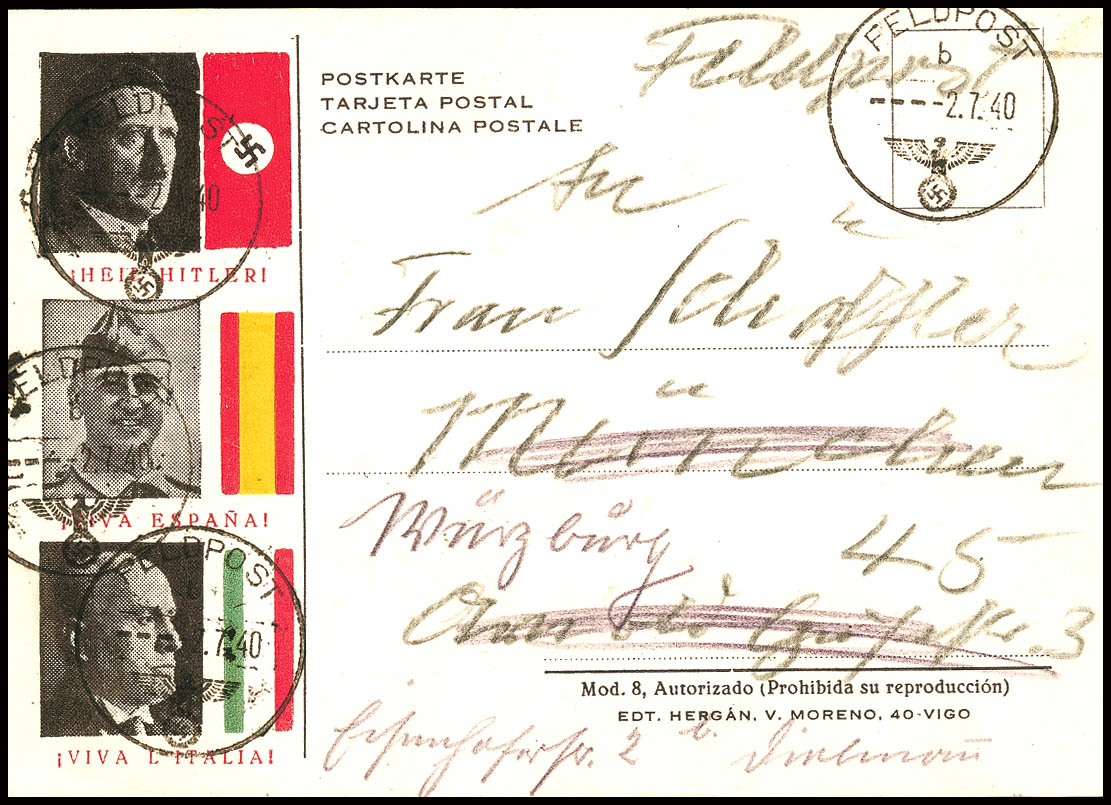 POSTKARTE
TARJETA POSTAL
CARTOLINA POSTALE
Feldpost
FELDPOST
b
-2.7.40
An
Frau Schäffler
München
Würzburg
45
3
Mod. 8, Autorizado (Prohibida su reproducción)
EDT. HERGÁN, V. MORENO, 40-VIGO
2 b.
FELDPOST
40
¡HEIL HITLER!
FELDPOST
2.7.40
¡VIVA ESPAÑA!
FELDPOST
.7.40
¡VIVA L'ITALIA!